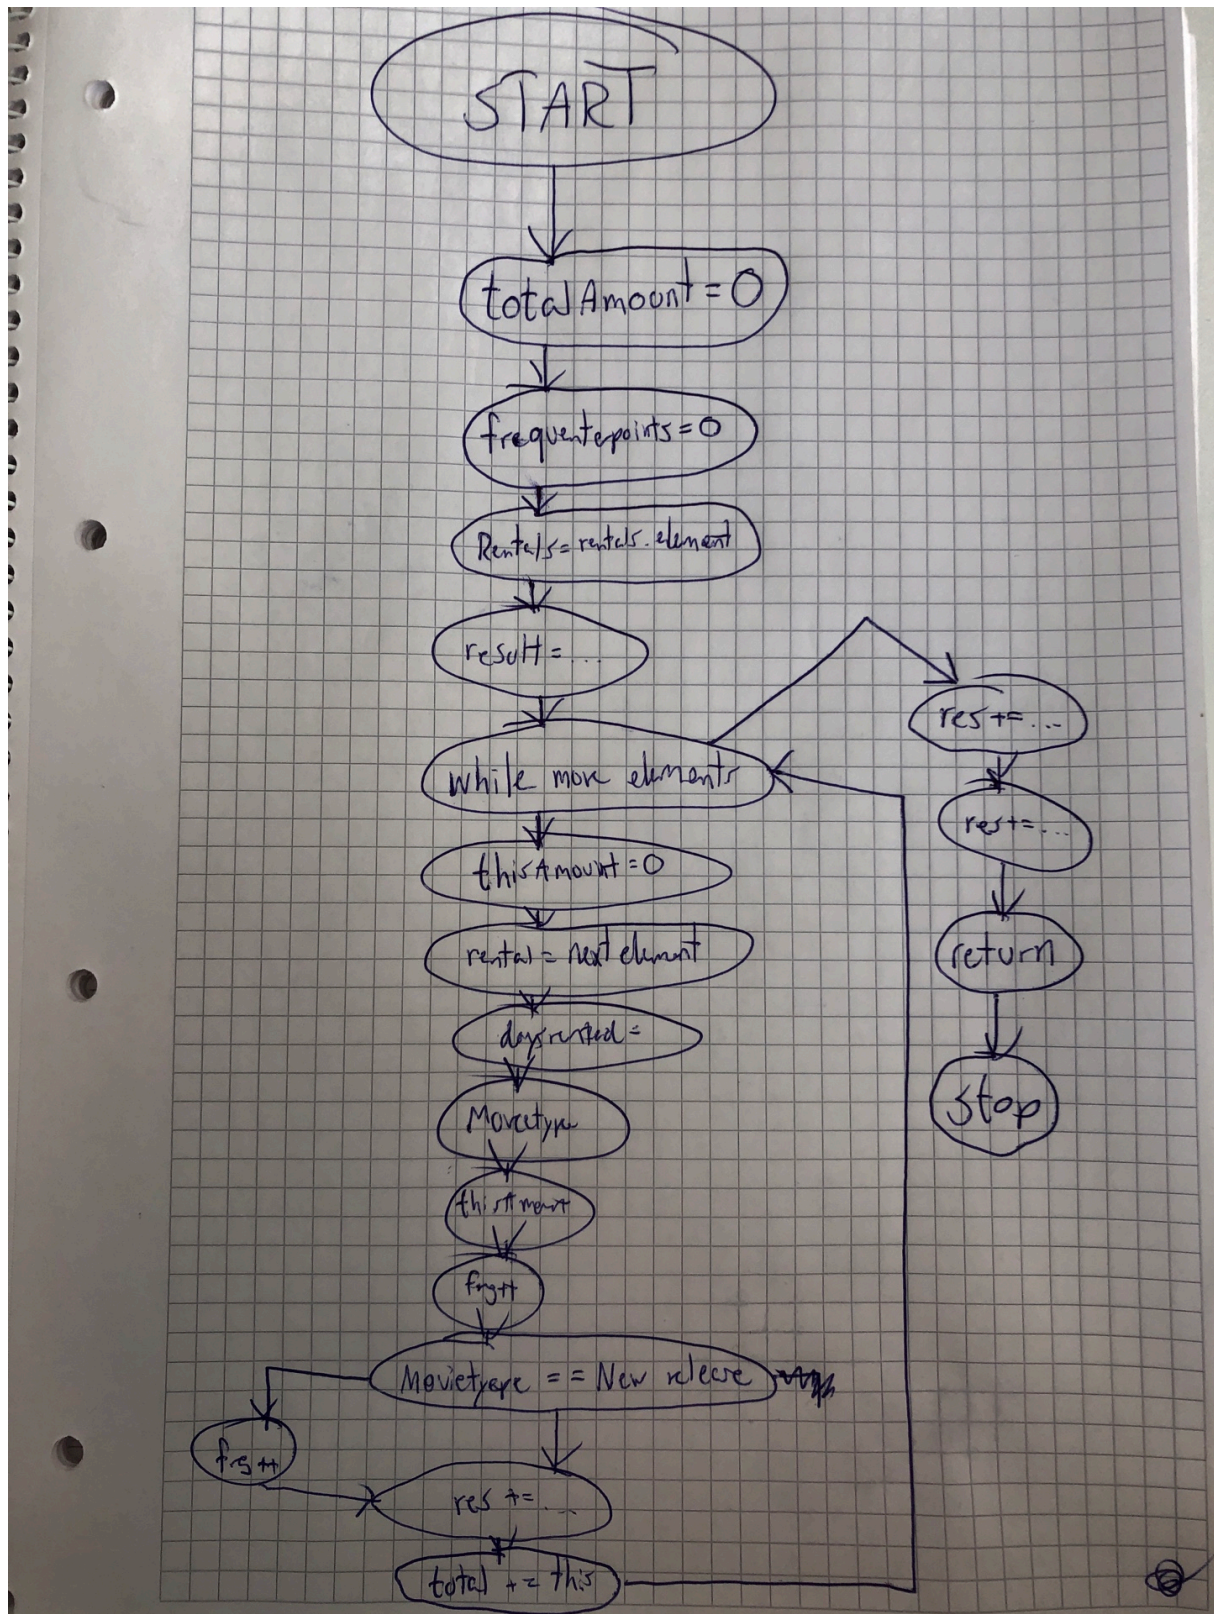 START
totalAmount = 0
frequenterpoints = 0
Rentals = rentals.element
result = ...
while more elements
thisAmount = 0
rental = next element
daysrented =
Movietype
thisAmount
frq++
Movietype == New release
frq++
res += ...
total += this
res += ...
res += ...
return
stop